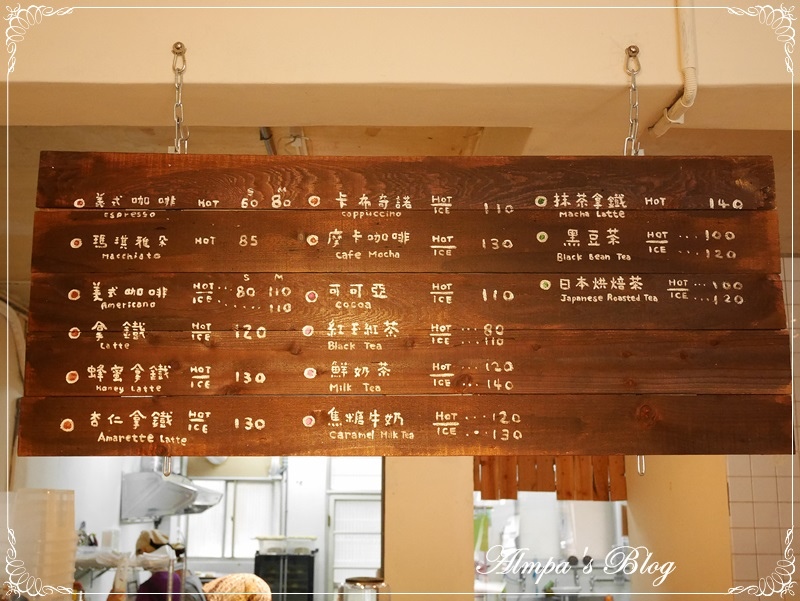 S M
美式咖啡 HOT 60 80
Espresso
瑪淇雅朵 HOT 85
Macchiato
S M
美式咖啡 HOT ·· 80 110
Americano ICE ····· 110
拿鐵 HOT ICE 120
Latte
蜂蜜拿鐵 HOT ICE 130
Honey Latte
杏仁拿鐵 HOT ICE 130
Amarette Latte
卡布奇諾 HOT ICE 110
cappuccino
摩卡咖啡 HOT ICE 130
Cafe Mocha
可可亞 HOT ICE 110
Cocoa
紅玉紅茶 HOT ··· 80
Black Tea ICE ··· 110
鮮奶茶 HOT ··· 120
Milk Tea ICE ··· 140
焦糖牛奶 HOT ···· 120
Caramel Milk Tea ICE ··· 130
抹茶拿鐵 HOT 140
Macha Latte
黑豆茶 HOT ··· 100
Black Bean Tea ICE ··· 120
日本烘焙茶 HOT ··· 100
Japanese Roasted Tea ICE ··· 120
Almpa's Blog